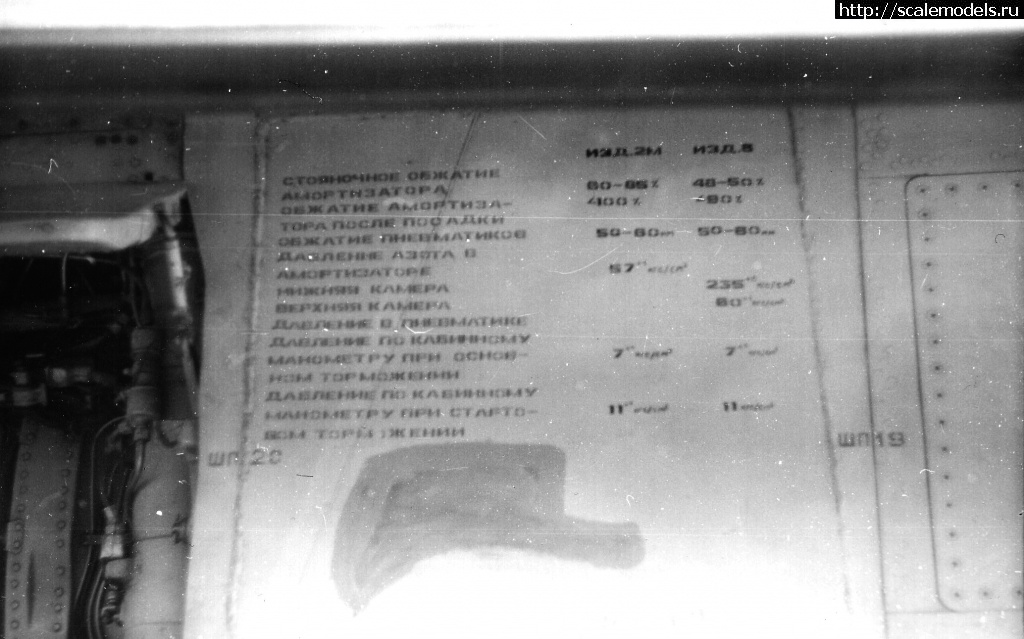 http://scalemodels.ru
ИЗД.2М ИЗД.5
СТОЯНОЧНОЕ ОБЖАТИЕ
АМОРТИЗАТОРА 60-65% 48-50%
ОБЖАТИЕ АМОРТИЗА- 100% 90%
ТОРА ПОСЛЕ ПОСАДКИ
ОБЖАТИЕ ПНЕВМАТИКОВ 50-60мм 50-60мм
ДАВЛЕНИЕ АЗОТА В
АМОРТИЗАТОРЕ 57 кгс/см²
НИЖНЯЯ КАМЕРА 235 кгс/см²
ВЕРХНЯЯ КАМЕРА 60 кгс/см²
ДАВЛЕНИЕ В ПНЕВМАТИКЕ
ДАВЛЕНИЕ ПО КАБИННОМУ
МАНОМЕТРУ ПРИ ОСНОВ- 7 кгс/см² 7 кгс/см²
НОМ ТОРМОЖЕНИИ
ДАВЛЕНИЕ ПО КАБИННОМУ
МАНОМЕТРУ ПРИ СТАРТО- 11 кгс/см² 11 кгс/см²
ВОМ ТОРМОЖЕНИИ
ШП 20
ШП19